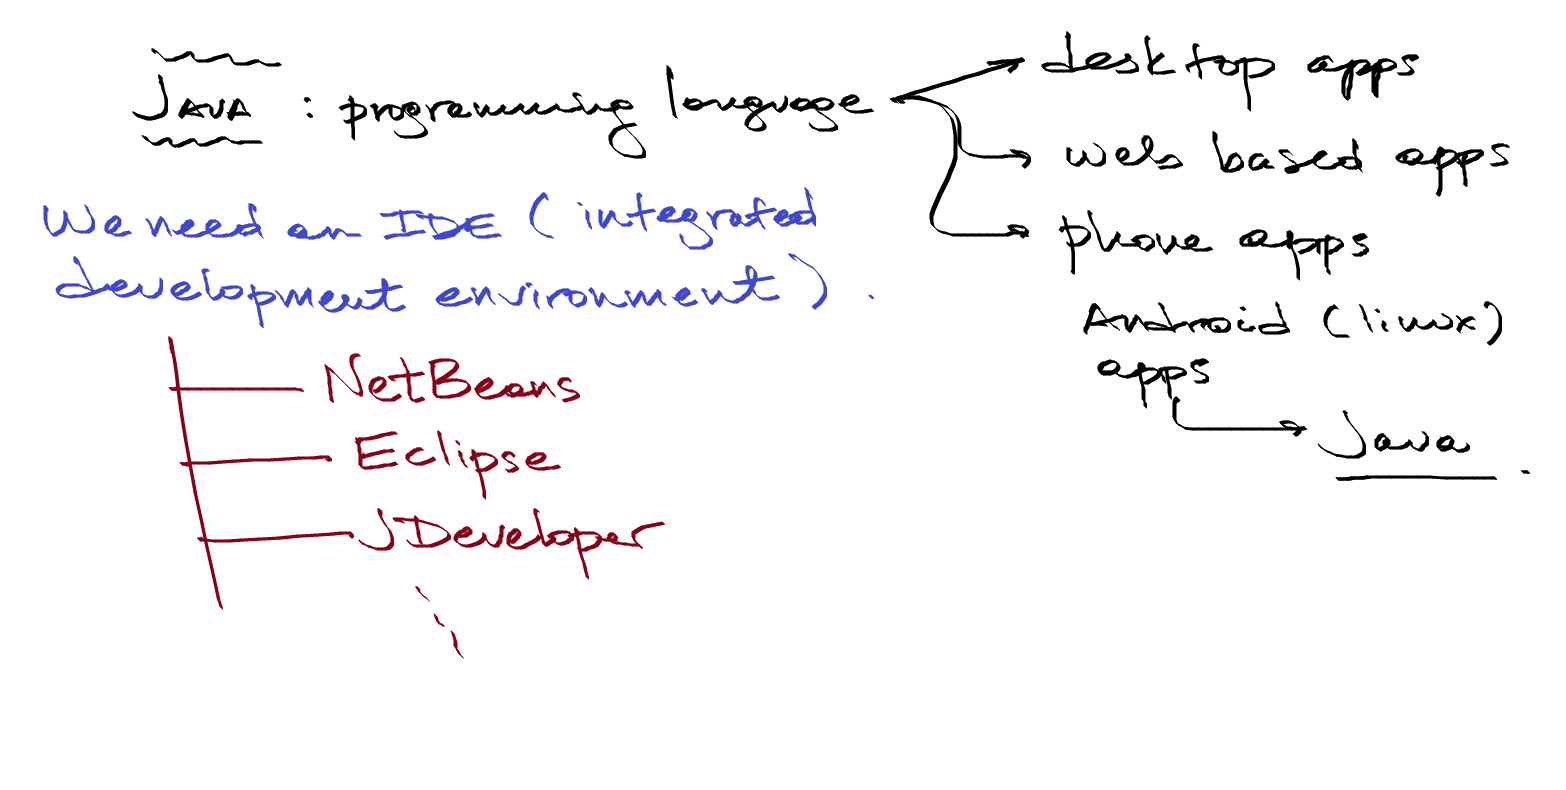 JAVA : programming language
desktop apps
web based apps
phone apps
Android (linux)
apps
Java
We need an IDE (integrated
development environment).
NetBeans
Eclipse
JDeveloper